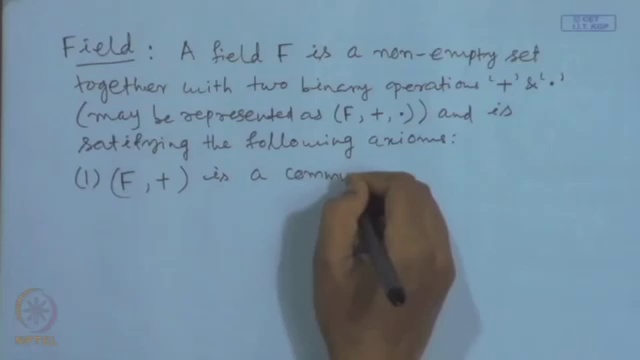 © CET
I.I.T. KGP
Field : A field F is a non-empty set
together with two binary operations '+' & '.'
(may be represented as (F, +, .)) and is
satisfying the following axioms:
(1) (F, +) is a commu
NPTEL